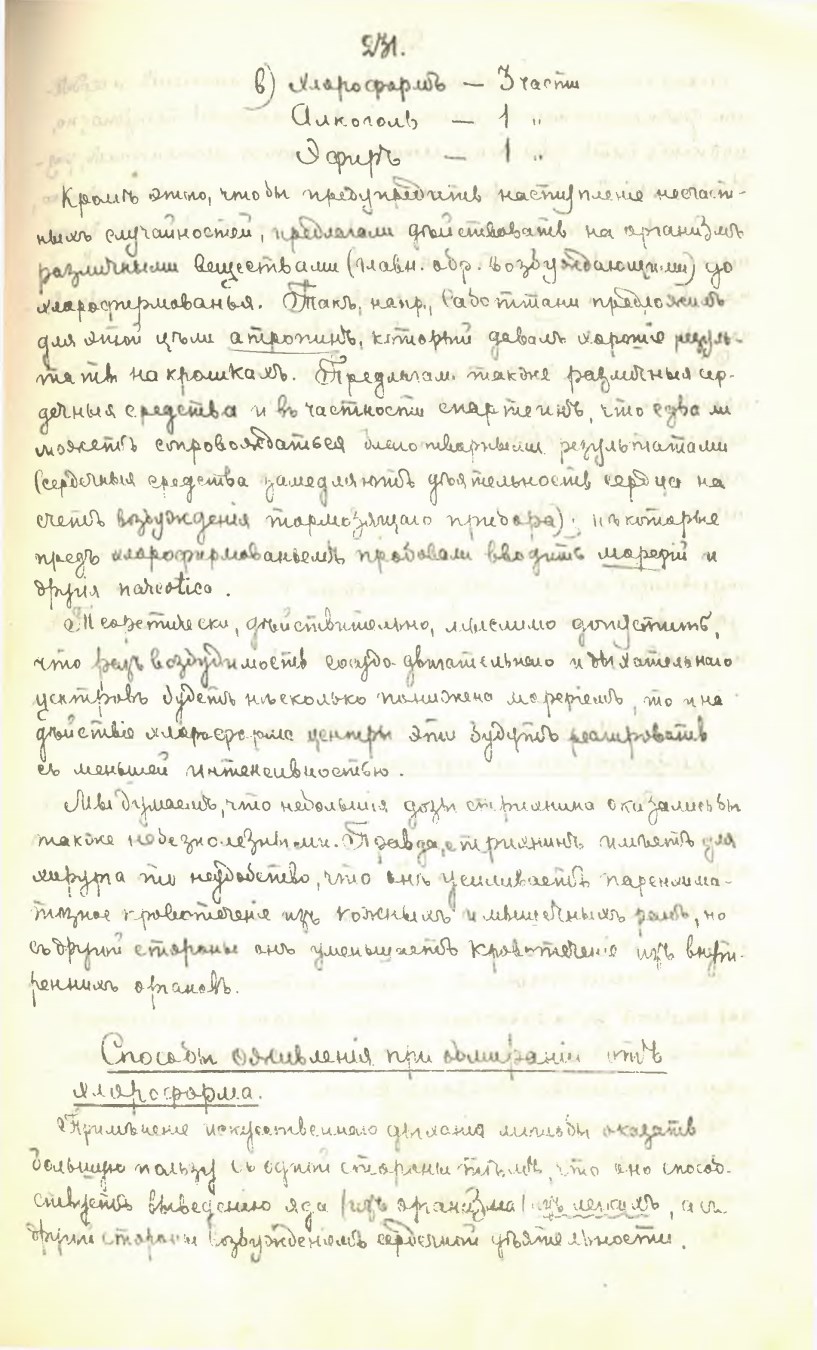 231.
в) Хлороформъ — 3 части
Алкоголь — 1 "
Эфиръ — 1 "
Кромѣ этого, чтобы предупредить наступленіе несчаст-
ныхъ случайностей, предлагали дѣйствовать на организмъ
различными веществами (главн. обр. возбуждающими) до
хлороформованья. Такъ, напр., предложилъ
для этой цѣли атропинъ, который давалъ хорошіе резуль-
таты на кошкахъ. Предлагали также различныя сер-
дечныя средства и въ частности спартеинъ, что едва ли
можетъ сопровождаться благотворными результатами
(сердечныя средства замедляютъ дѣятельность сердца на
счетъ возбужденія тормозящаго прибора); нѣкоторые
предъ хлороформированьемъ пробовали вводить морфій и
другія narcotica.
Теоретически, дѣйствительно, мыслимо допустить,
что разъ возбудимость сосудо-двигательнаго и дыхательнаго
центровъ будетъ нѣсколько понижена морфіемъ, то и на
дѣйствіе хлороформа центры эти будутъ реагировать
съ меньшей интенсивностью.
Мы думаемъ, что небольшія дозы стрихнина оказались бы
также небезполезными. Правда, стрихнинъ имѣетъ для
хирурга то неудобство, что онъ усиливаетъ паренхима-
тозное кровотеченіе изъ кожныхъ и мышечныхъ ранъ, но
съ другой стороны онъ уменьшаетъ кровотеченіе изъ внут-
реннихъ органовъ.
Способы оживленія при обмираніи отъ
хлороформа.
Примѣненіе искусственнаго дыханія могло бы оказать
большую пользу съ одной стороны тѣмъ, что оно способ-
ствуетъ выведенію яда (изъ организма) изъ легкихъ, а съ
другой стороны возбужденіемъ сердечной дѣятельности.